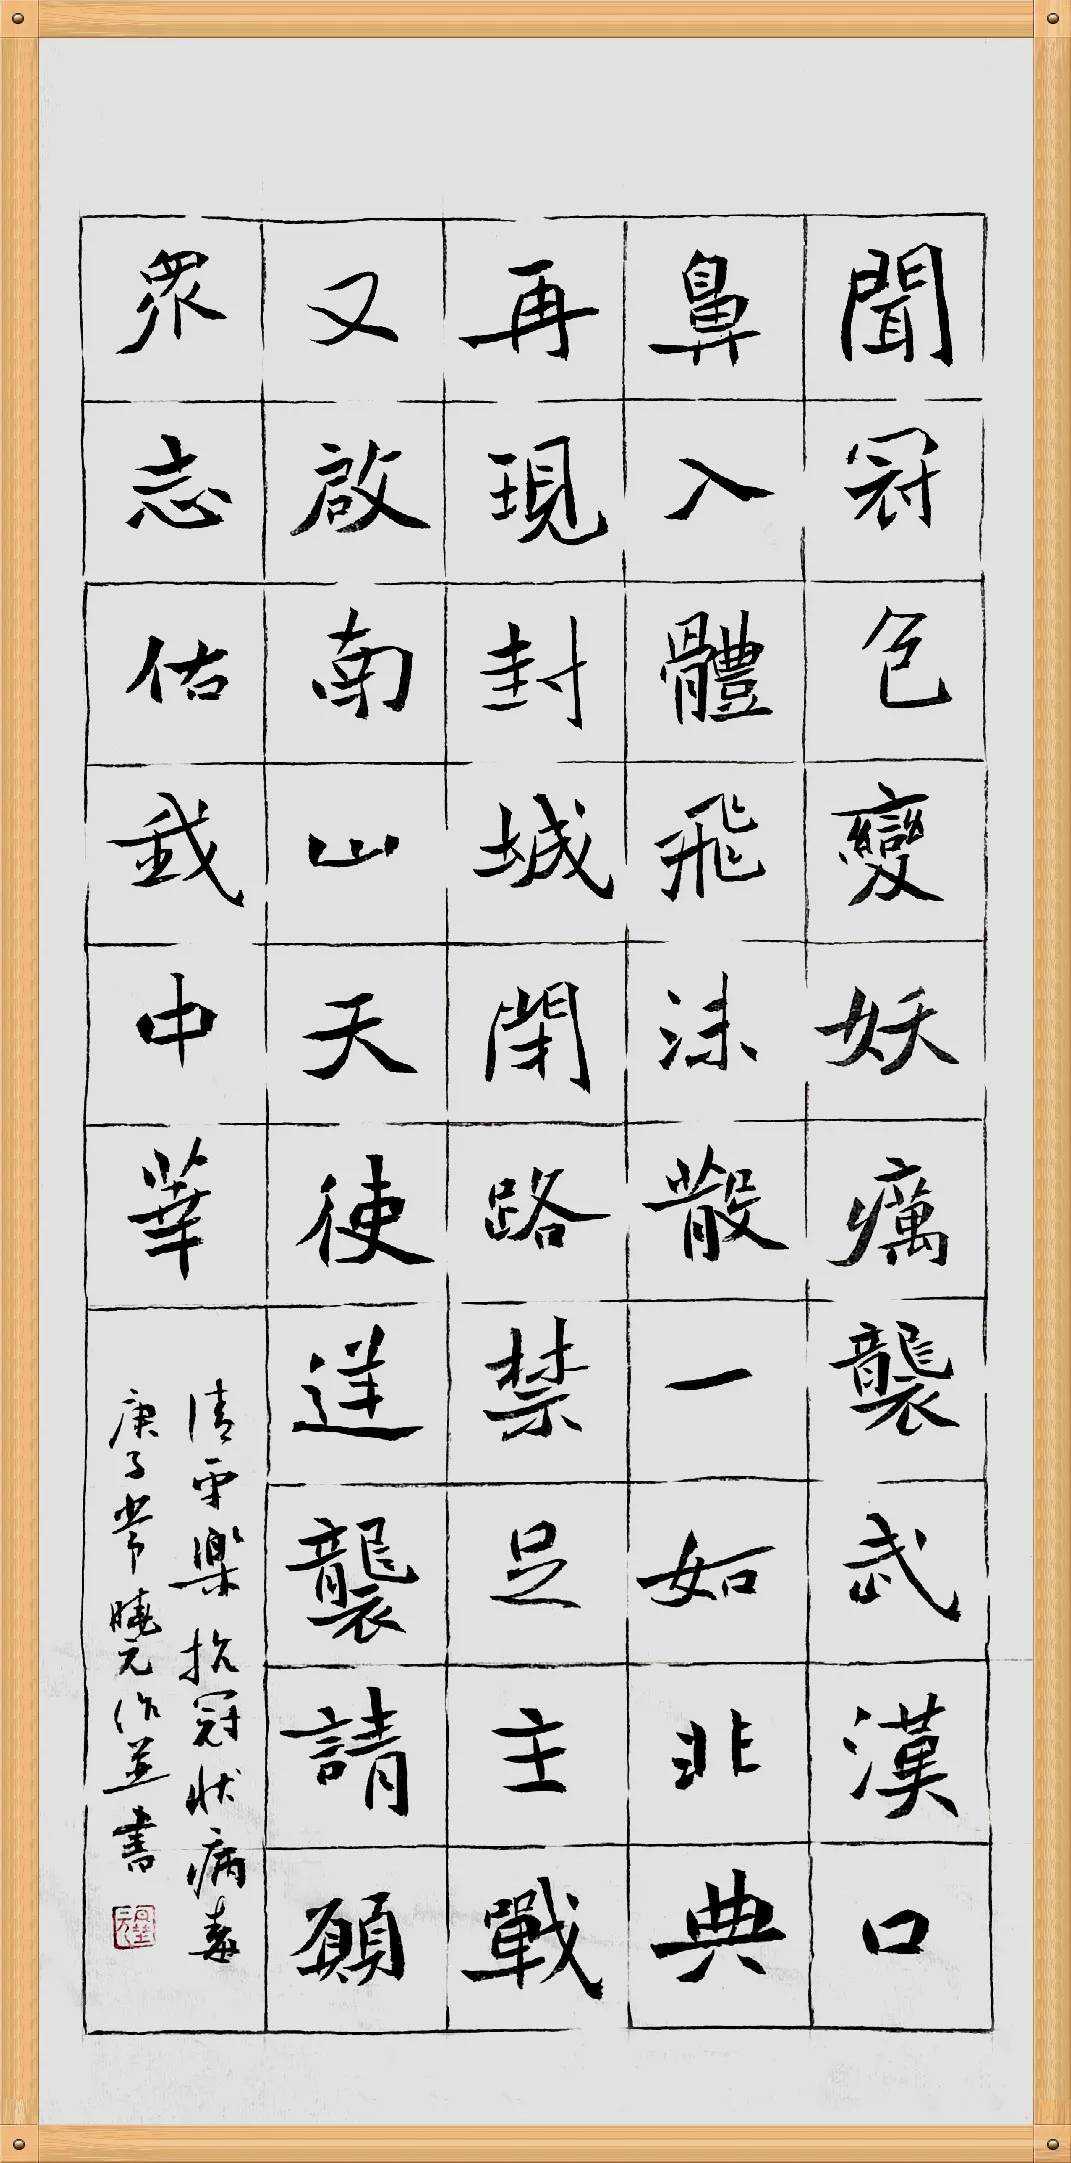 聞冠色變妖癘襲武漢口
鼻入體飛沫散一如非典
再現封城閉路禁足主戰
又啟南山天使逆襲請願
眾志佑我中華
清平樂抗冠狀病毒
庚子常曉元作並書